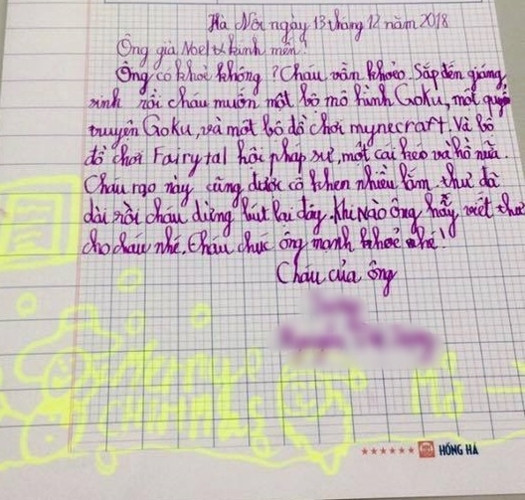 Hà Nội ngày 13 tháng 12 năm 2018
Ông già Noel kính mến!
Ông có khoẻ không? Cháu vẫn khoẻ. Sắp đến giáng
sinh rồi cháu muốn một bộ mô hình Goku, một quyển
truyện Goku, và một bộ đồ chơi mynecraft. Và bộ
đồ chơi Fairytal hội pháp sư, một cái kéo và hồ nữa.
Cháu rạo này cũng được cô khen nhiều lắm. thư đã
dài rồi cháu dừng bút lại đây. Khi nào ông hẫy viết thư
cho cháu nhé. Cháu chúc ông mạnh khoẻ nhé!
Cháu của ông
HỒNG HÀ